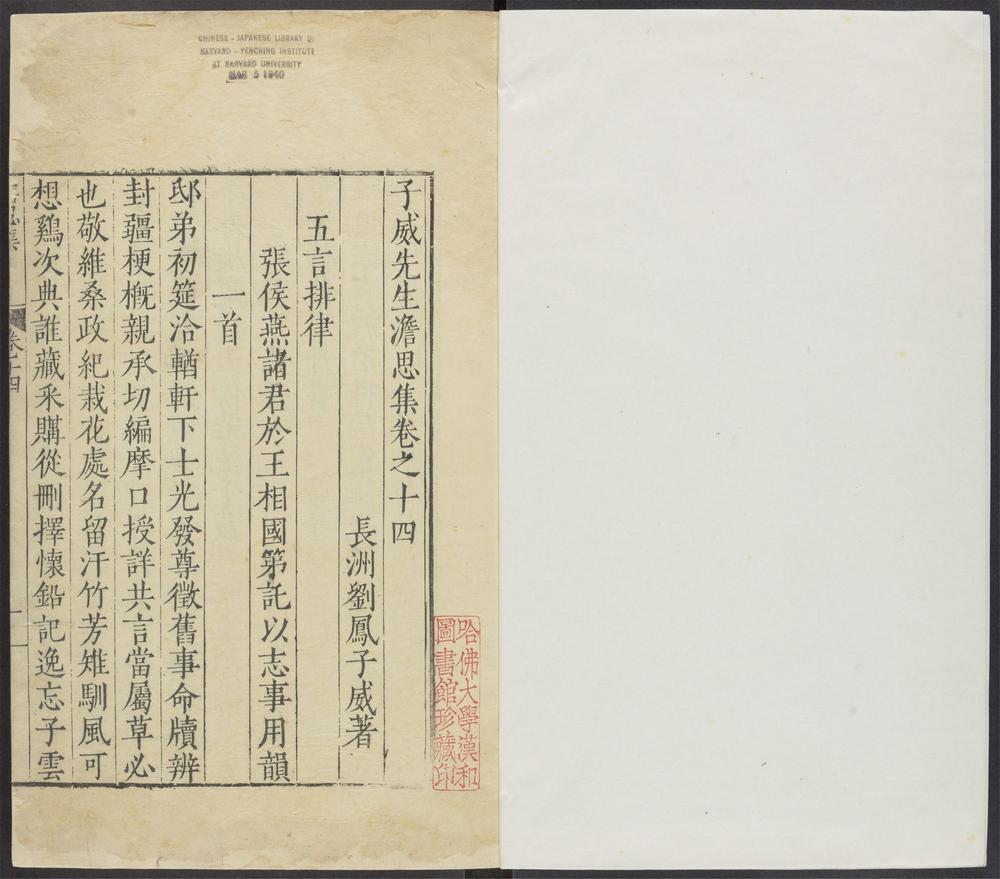 CHINESE - JAPANESE LIBRARY O
HARVARD - YENCHING INSTITUTE
AT HARVARD UNIVERSITY
MAR 5 1940
哈佛大學漢和
圖書館珍藏印
子威先生澹思集卷之十四
長洲劉鳳子威著
五言排律
張侯燕諸君於王相國第託以志事用韻
一首
邸弟初筵洽輶軒下士光發尊徵舊事命牘辨
封疆梗槪親承切編摩口授詳共言當屬草必
也敬維桑政紀栽花處名留汗竹芳雉馴風可
想鷄次典誰藏采購從刪擇懷鉛記逸忘子雲
卷十四
一